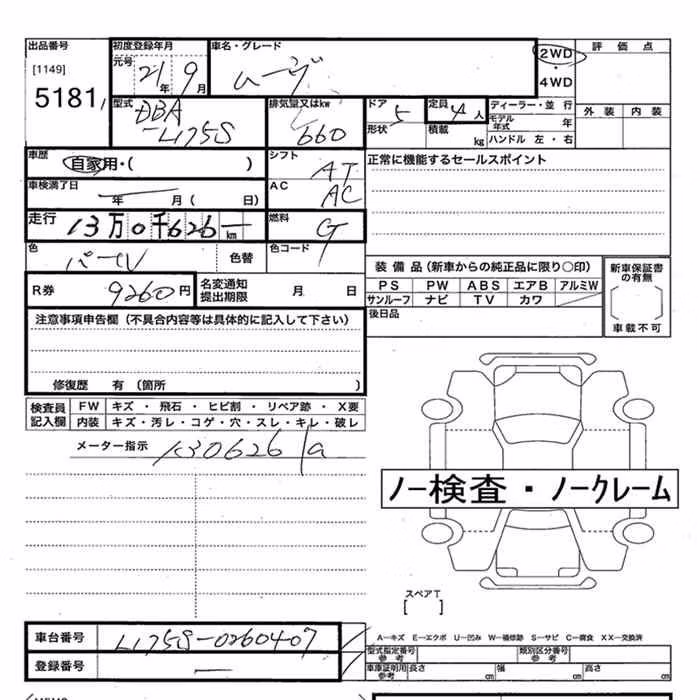 出品番号 初度登録年月 車名・グレード 2WD 評価点
[1149] 元号 21年 9月 ムーヴ ・
5181 4WD
型式 DBA 排気量又はkw ドア 5 定員 4人 ディーラー・並行 外装 内装
-L175S 660 形状 積載 kg モデル年式 年
ハンドル 左・右
車歴 自家用・( ) シフト AT 正常に機能するセールスポイント
車検満了日 年 月( 日) AC AC
走行 13万0千626 km 燃料 G
色 パール 色替 色コード
装備品(新車からの純正品に限り○印) 新車保証書の有無
R券 9260円 名変通知提出期限 月 日 PS PW ABS エアB アルミW
サンルーフ ナビ TV カワ
注意事項申告欄(不具合内容等は具体的に記入して下さい) 後日品 車載不可
修復歴 有〔箇所 〕
検査員記入欄 FW キズ・飛石・ヒビ割・リペア跡・X要
内装 キズ・汚レ・コゲ・穴・スレ・キレ・破レ
メーター指示 130626
ノー検査・ノークレーム
スペアT
[ ]
車台番号 L175S-0260407 A―キズ E―エクボ U―凹み W―補修跡 S―サビ C―腐食 XX―交換済
型式指定番号 参考 類別区分番号 参考
登録番号 ― 車庫証明用 参考 長さ cm 幅 cm 高さ cm